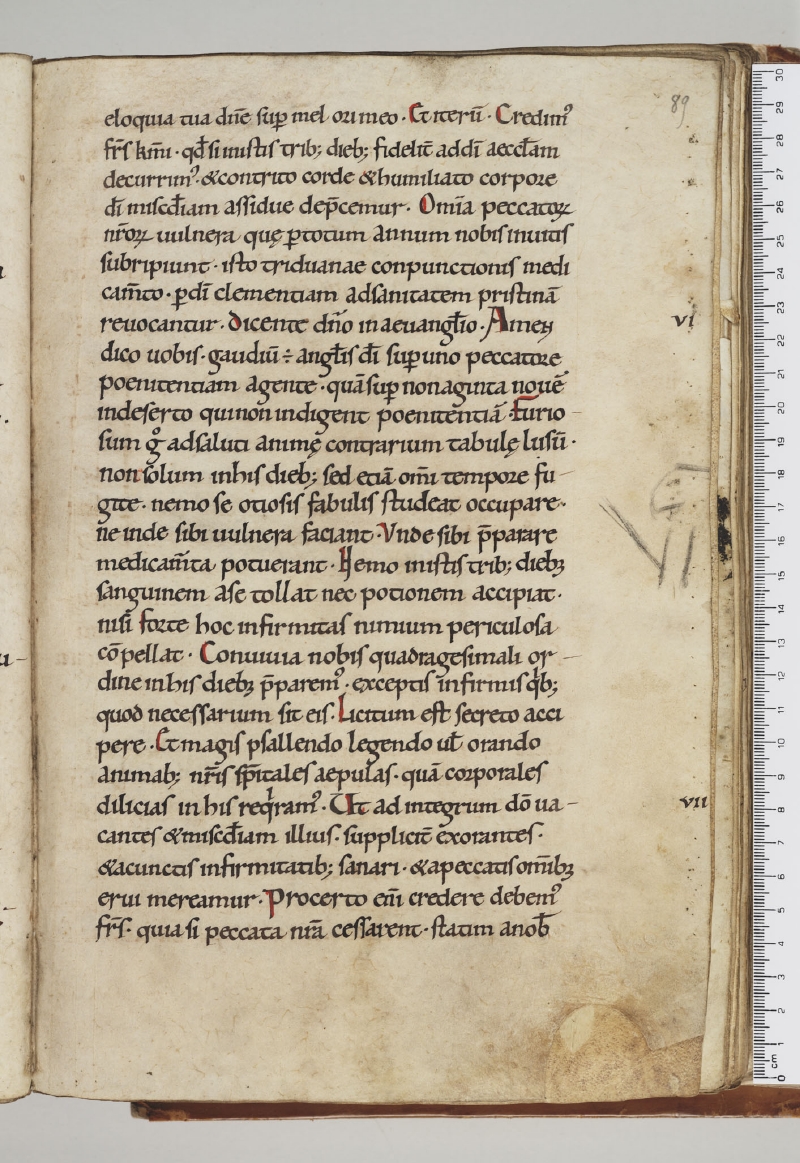 89
eloquia tua dn̄e sup̄ mel ori meo · Et iterū · Credim᷒
fr̄s km̄i · qd̄ si iustis trib; dieb; fidelit̄ addī aeccl̄am
decurrim᷒ · & contrito corde & humiliato corpore
dī misc̄diam assidue dep̄cemur · Omīa peccatoꝝ
nr̄oꝝ uulnera quę ꝑ totum annum nobis inuitis
subripiunt · isto triduanae conpunctionis medi
cam̄to · ꝑ dī clementiam ad sanitatem pristinā
reuocantur · dicente dn̄o in aeuangl̄io · Amen
dico uobis · gaudiū ÷ angl̄is dī sup̄ uno peccatore
poenitentiam agente · quā sup̄ nonaginta nouē
in deserto qui non indigent poenitentiā · Lurio-
sum gͦ ad saluti animę contrarium tabulę lusū ·
non solum in his dieb; sed etiā om̄i tempore fu-
gite · nemo se otiosis fabulis studeat occupare ·
ne inde sibi uulnera faciant · Vnde sibi p̄parare
medicam̄ta potuerant · Nemo in istis trib; dieb;
sanguinem a se tollat nec potionem accipiat ·
nisi forte hoc infirmitas nimium periculosa
cōpellat · Conuiuia nobis quadragesimali or-
dine in his dieb; p̄parem᷒ · exceptis infirmis qͥb;
quod necessarium sit eis · Licitum est secreto acci
pere · Et magis psallendo legendo ul̄ orando
animab; nr̄is sp̄itales aepulas · quā corporales
dilicias in his reqͥram᷒ · Ut ad integrum dō ua-
cantes & misc̄diam illius · supplicit̄ exorantes ·
& a cunctis infirmitatib; sanari · & a peccatis om̄ib;
erui mereamur · Pro certo em̄ credere debem᷒
fr̄s · quia si peccata nr̄a cessarent · statim a nob̄
vi
VI
vii